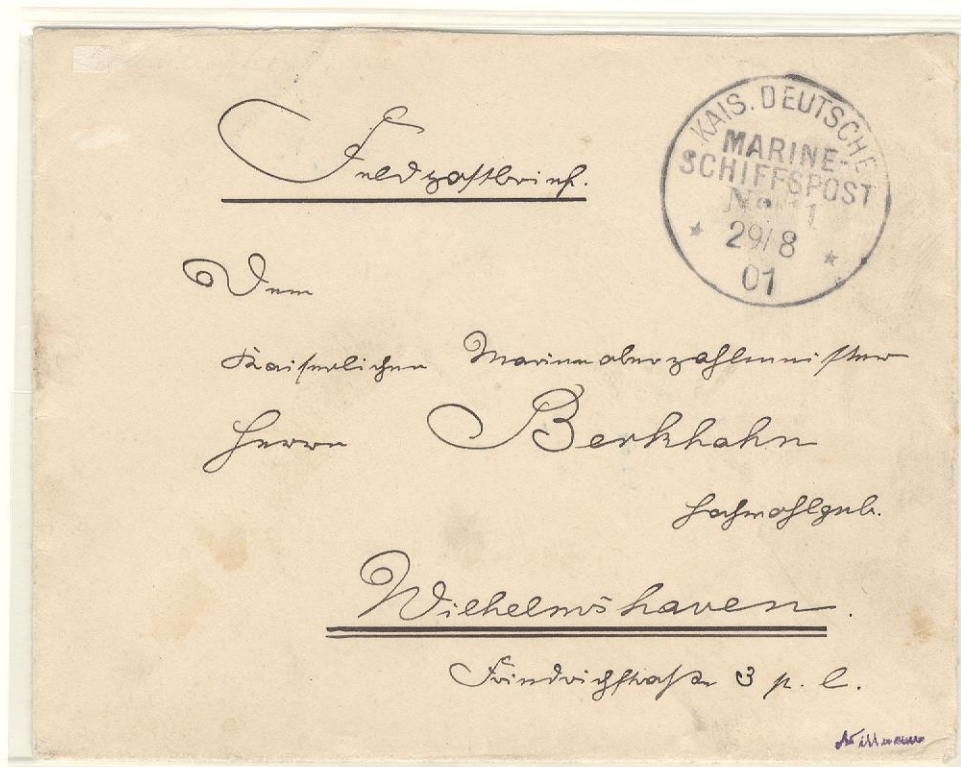 Feldpostbrief.
KAIS. DEUTSCHE
MARINE-
SCHIFFSPOST
No
29/8
01
Dem
Kaiserlichen Marineoberzahlmeister
Herrn Berkhahn
Hochwohlgeb.
Wilhelmshaven.
Friedrichstraße 3 p. l.